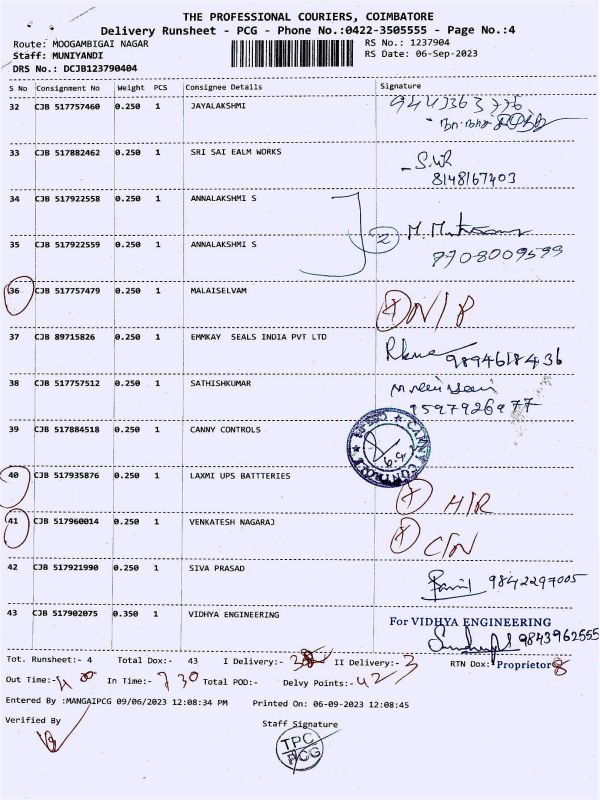 THE PROFESSIONAL COURIERS, COIMBATORE
Delivery Runsheet - PCG - Phone No.:0422-3505555 - Page No.:4
Route: MOOGAMBIGAI NAGAR RS No.: 1237904
Staff: MUNIYANDI RS Date: 06-Sep-2023
DRS No.: DCJB123790404
S No Consignment No Weight PCS Consignee Details Signature
32 CJB 517757460 0.250 1 JAYALAKSHMI
33 CJB 517882462 0.250 1 SRI SAI EALM WORKS
8148167403
34 CJB 517922558 0.250 1 ANNALAKSHMI S
2
35 CJB 517922559 0.250 1 ANNALAKSHMI S
7708009599
36 CJB 517757479 0.250 1 MALAISELVAM
37 CJB 89715826 0.250 1 EMMKAY SEALS INDIA PVT LTD
9894618436
38 CJB 517757512 0.250 1 SATHISHKUMAR
1597926977
39 CJB 517884518 0.250 1 CANNY CONTROLS
40 CJB 517935876 0.250 1 LAXMI UPS BATTTERIES
41 CJB 517960014 0.250 1 VENKATESH NAGARAJ
42 CJB 517921990 0.250 1 SIVA PRASAD
9842297005
43 CJB 517902075 0.350 1 VIDHYA ENGINEERING For VIDHYA ENGINEERING
9843962555
Tot. Runsheet:- 4 Total Dox:- 43 I Delivery:- II Delivery:- 3 RTN Dox: Proprietor 8
Out Time:- 4 00 In Time:- 7 30 Total POD:- Delvy Points:- 42
Entered By :MANGAIPCG 09/06/2023 12:08:34 PM Printed On: 06-09-2023 12:08:45
Verified By Staff Signature
TPC
PCG